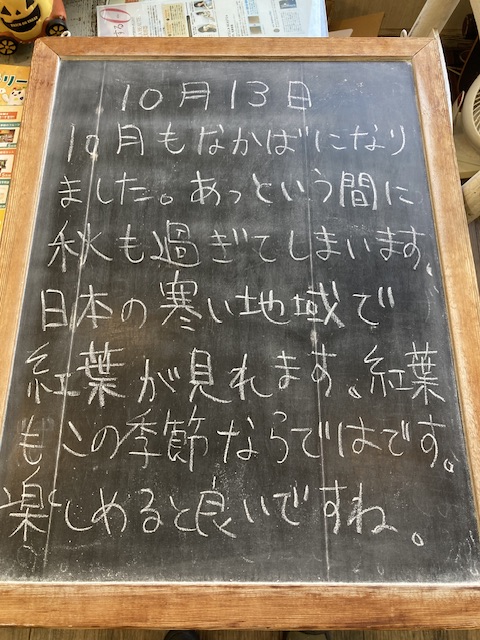 10月13日
10月もなかばになり
ました。あっという間に
秋も過ぎてしまいます、
日本の寒い地域で
紅葉が見れます、紅葉
もこの季節ならではです。
楽しめると良いですね。